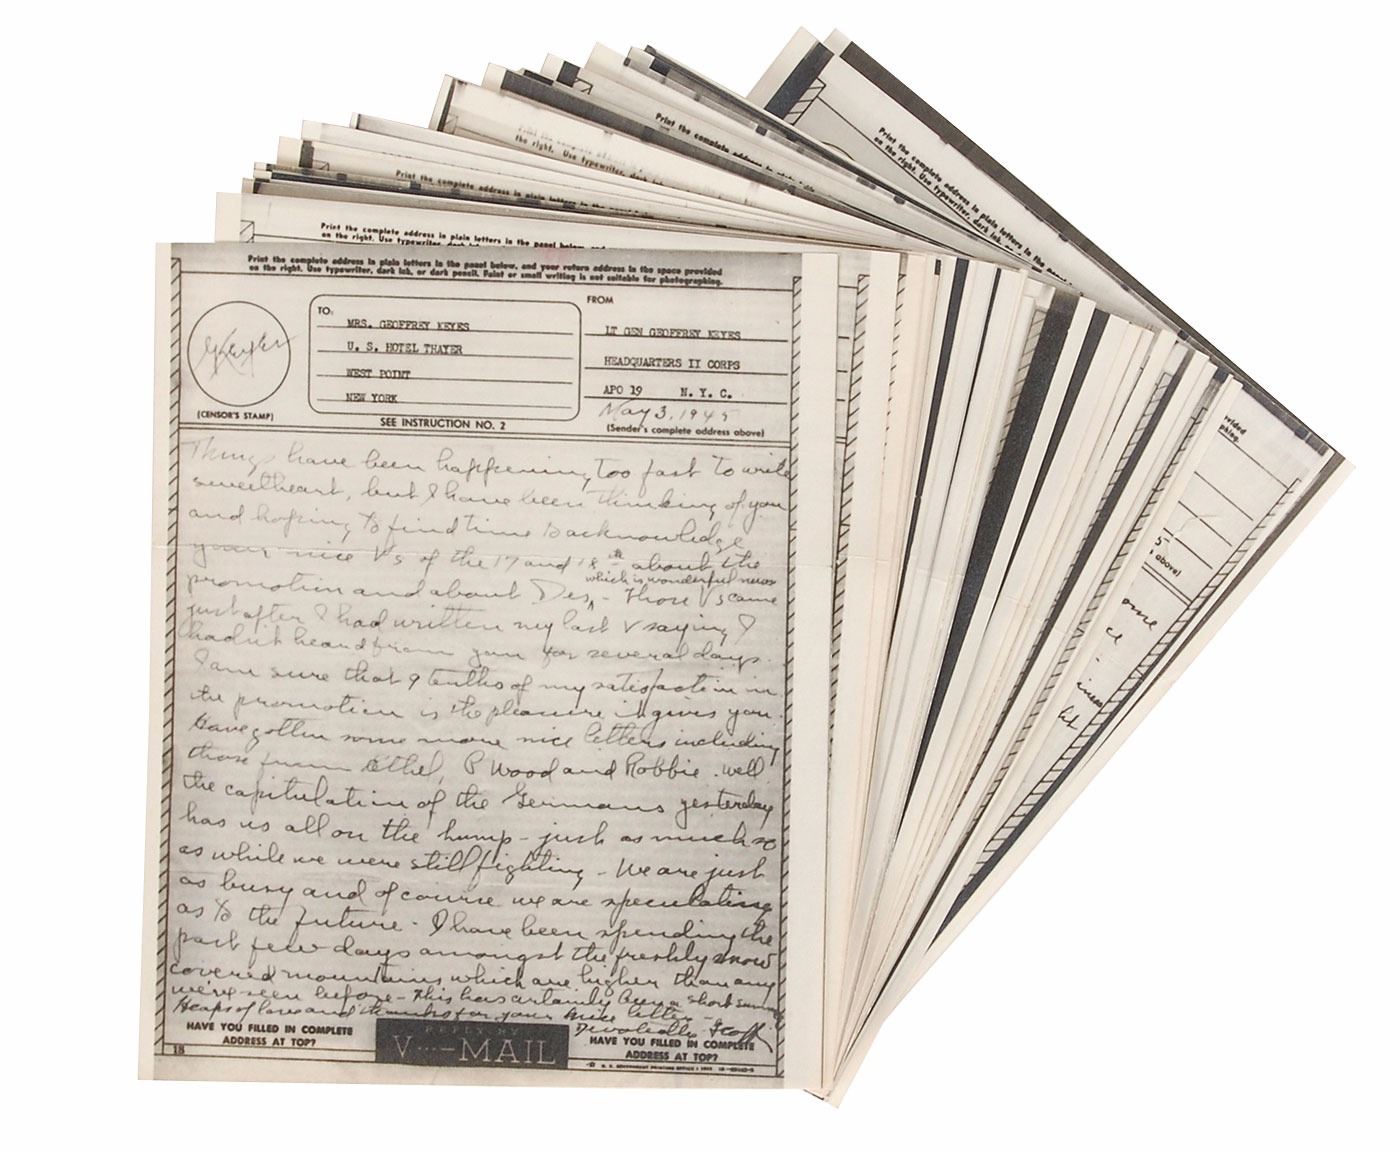 Print the complete address in plain letters
on the right. Use typewriter, dark ink,
Print the complete address
Print the complete address in plain letters in the
Print the complete address in plain letters in the panel below, and
on the right. Use typewriter, dark ink
Print the complete address in plain letters in the panel below, and your return address in the space provided
on the right. Use typewriter, dark ink, or dark pencil. Faint or small writing is not suitable for photographing.
TO:
MRS. GEOFFREY KEYES
U. S. HOTEL THAYER
WEST POINT
NEW YORK
FROM
LT GEN GEOFFREY KEYES
HEADQUARTERS II CORPS
APO 19 N. Y. C.
May 3, 1945
(Sender's complete address above)
GKeyes
(CENSOR'S STAMP)
SEE INSTRUCTION NO. 2
Things have been happening too fast to write
sweetheart, but I have been thinking of you
and hoping to find time to acknowledge
your nice V's of the 17 and 18th about the
which is wonderful news
promotion and about Des, - Those Vs came
just after I had written my last V saying I
hadn't heard from you for several days.
I am sure that 9 tenths of my satisfaction in
the promotion is the pleasure it gives you.
Have gotten some more nice letters including
those from Ethel, P Wood and Robbie. Well
the capitulation of the Germans yesterday
has us all on the hump - just as much so
as while we were still fighting - We are just
as busy and of course we are speculating
as to the future. I have been spending the
past few days amongst the freshly snow
covered mountains which are higher than any
we've seen before - This has certainly been a short
Heaps of love and thanks for your nice letter -
Devotedly Geoff
HAVE YOU FILLED IN COMPLETE
ADDRESS AT TOP?
REPLY BY
V···—MAIL
HAVE YOU FILLED IN COMPLETE
ADDRESS AT TOP?
18
vided
phing.
above)